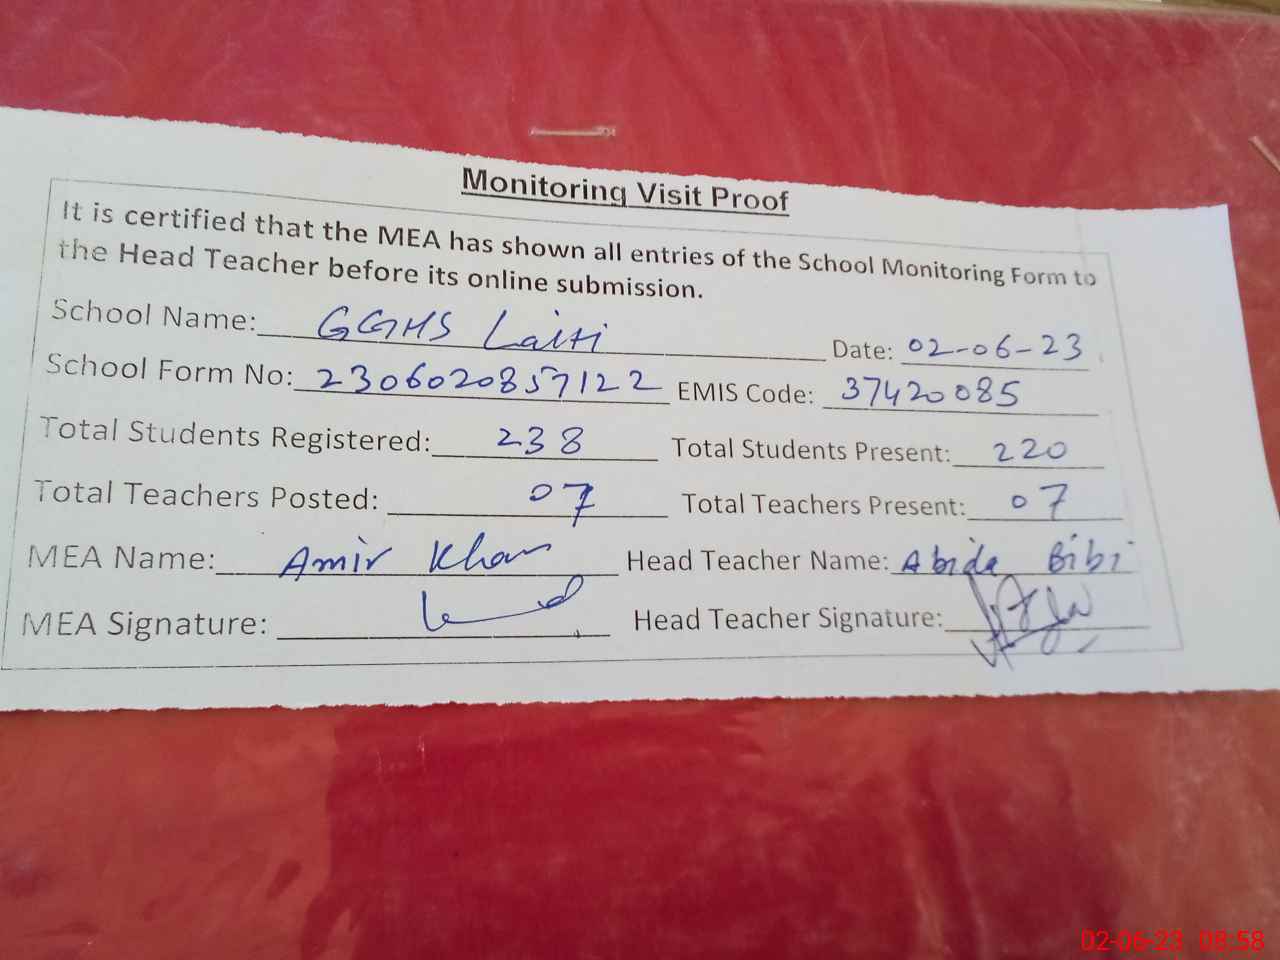 Monitoring Visit Proof
It is certified that the MEA has shown all entries of the School Monitoring Form to
the Head Teacher before its online submission.
School Name: GGHS Laiti Date: 02-06-23
School Form No: 2306020857122 EMIS Code: 37420085
Total Students Registered: 238 Total Students Present: 220
Total Teachers Posted: 07 Total Teachers Present: 07
MEA Name: Amir Khan Head Teacher Name: Abida Bibi
MEA Signature: Head Teacher Signature:
02-06-23 08:58